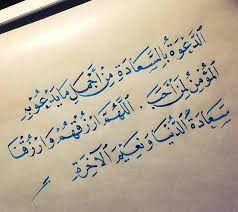 الدَّعْوَةُ بِالسَّعَادَةِ مِنْ أَجْمَلِ مَا يَدْعُو بِهِ
المُؤْمِنُ لِمَنْ أَحَبَّ . اللَّهُمَّ ارْزُقْهُمْ وَارْزُقْنَا
سَعَادَةَ الدُّنْيَا وَنَعِيمَ الآخِرَةِ